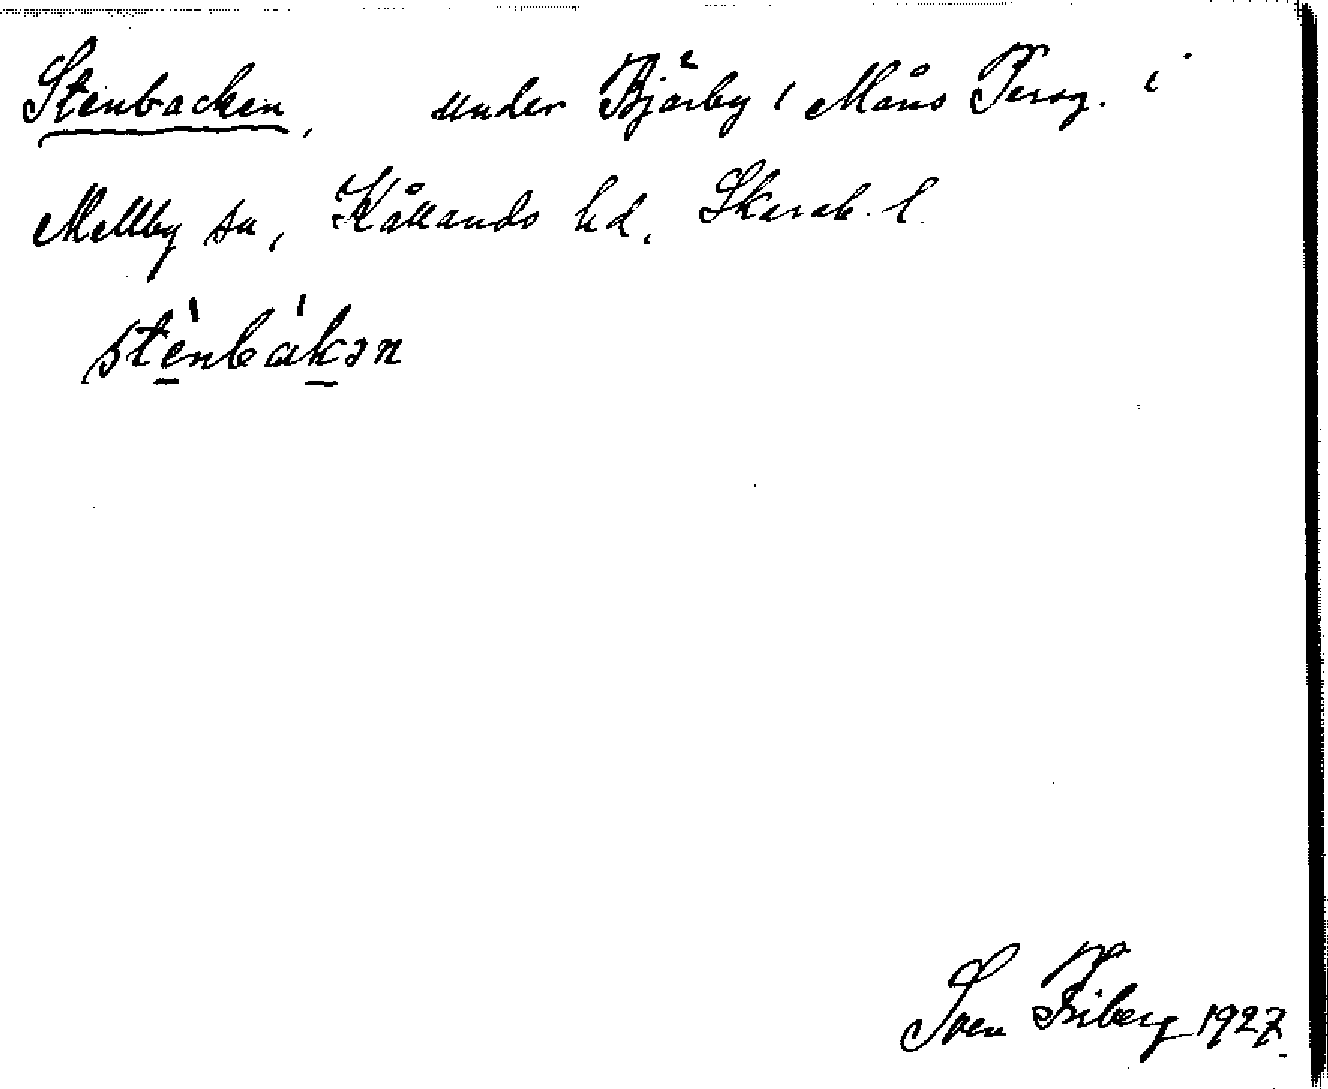 Stenbacken, under Bjärby, Måns Persg. i
Mellby sn, Kållands hd, Skarab. l.
stènbákən
Sven Friberg 1927.